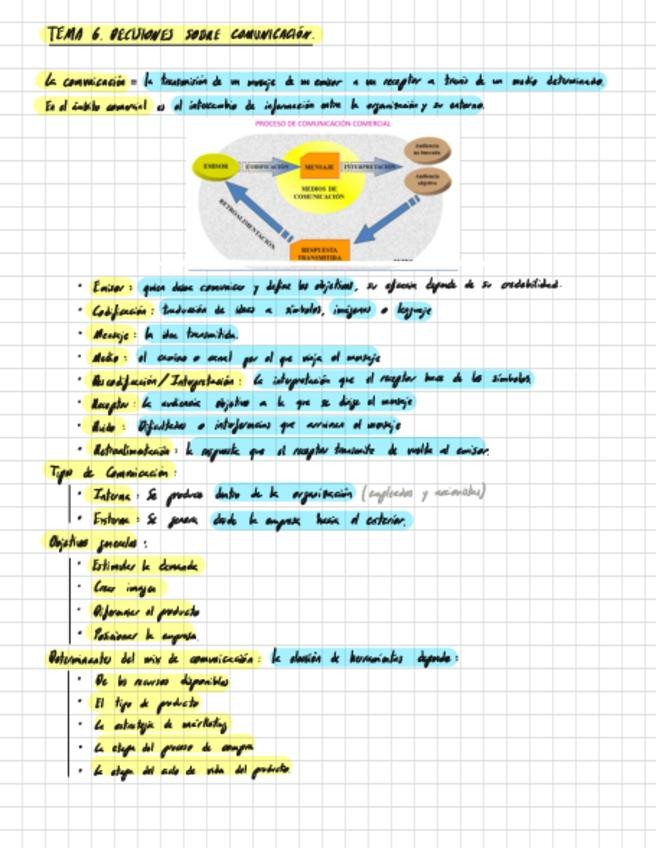 TEMA 6. DECISIONES SOBRE COMUNICACIÓN.
La comunicación = la transmisión de un mensaje de un emisor a un receptor a través de un medio determinado.
En el ámbito comercial es el intercambio de información entre la organización y su entorno.
PROCESO DE COMUNICACIÓN COMERCIAL
Audiencia no buscada
EMISOR CODIFICACIÓN MENSAJE INTERPRETACIÓN
Audiencia objetivo
MEDIOS DE COMUNICACIÓN
RETROALIMENTACIÓN
RESPUESTA TRANSMITIDA
• Emisor: quien desea comunicar y define los objetivos, su eficacia depende de su credibilidad.
• Codificación: traducción de ideas a símbolos, imágenes o lenguaje
• Mensaje: la idea transmitida.
• Medio: el camino o canal por el que viaja el mensaje
• Descodificación/Interpretación: la interpretación que el receptor hace de los símbolos.
• Receptor: la audiencia objetivo a la que se dirige el mensaje
• Ruido: Dificultades o interferencias que arruinan el mensaje
• Retroalimentación: la respuesta que el receptor transmite de vuelta al emisor.
Tipos de Comunicación:
• Interna: Se produce dentro de la organización (empleados y accionistas)
• Externa: Se genera desde la empresa hacia el exterior.
Objetivos generales:
• Estimular la demanda
• Crear imagen
• Diferenciar el producto
• Posicionar la empresa.
Determinantes del mix de comunicación: la elección de herramientas depende:
• De los recursos disponibles
• El tipo de producto
• La estrategia de márketing
• La etapa del proceso de compra
• La etapa del ciclo de vida del producto.